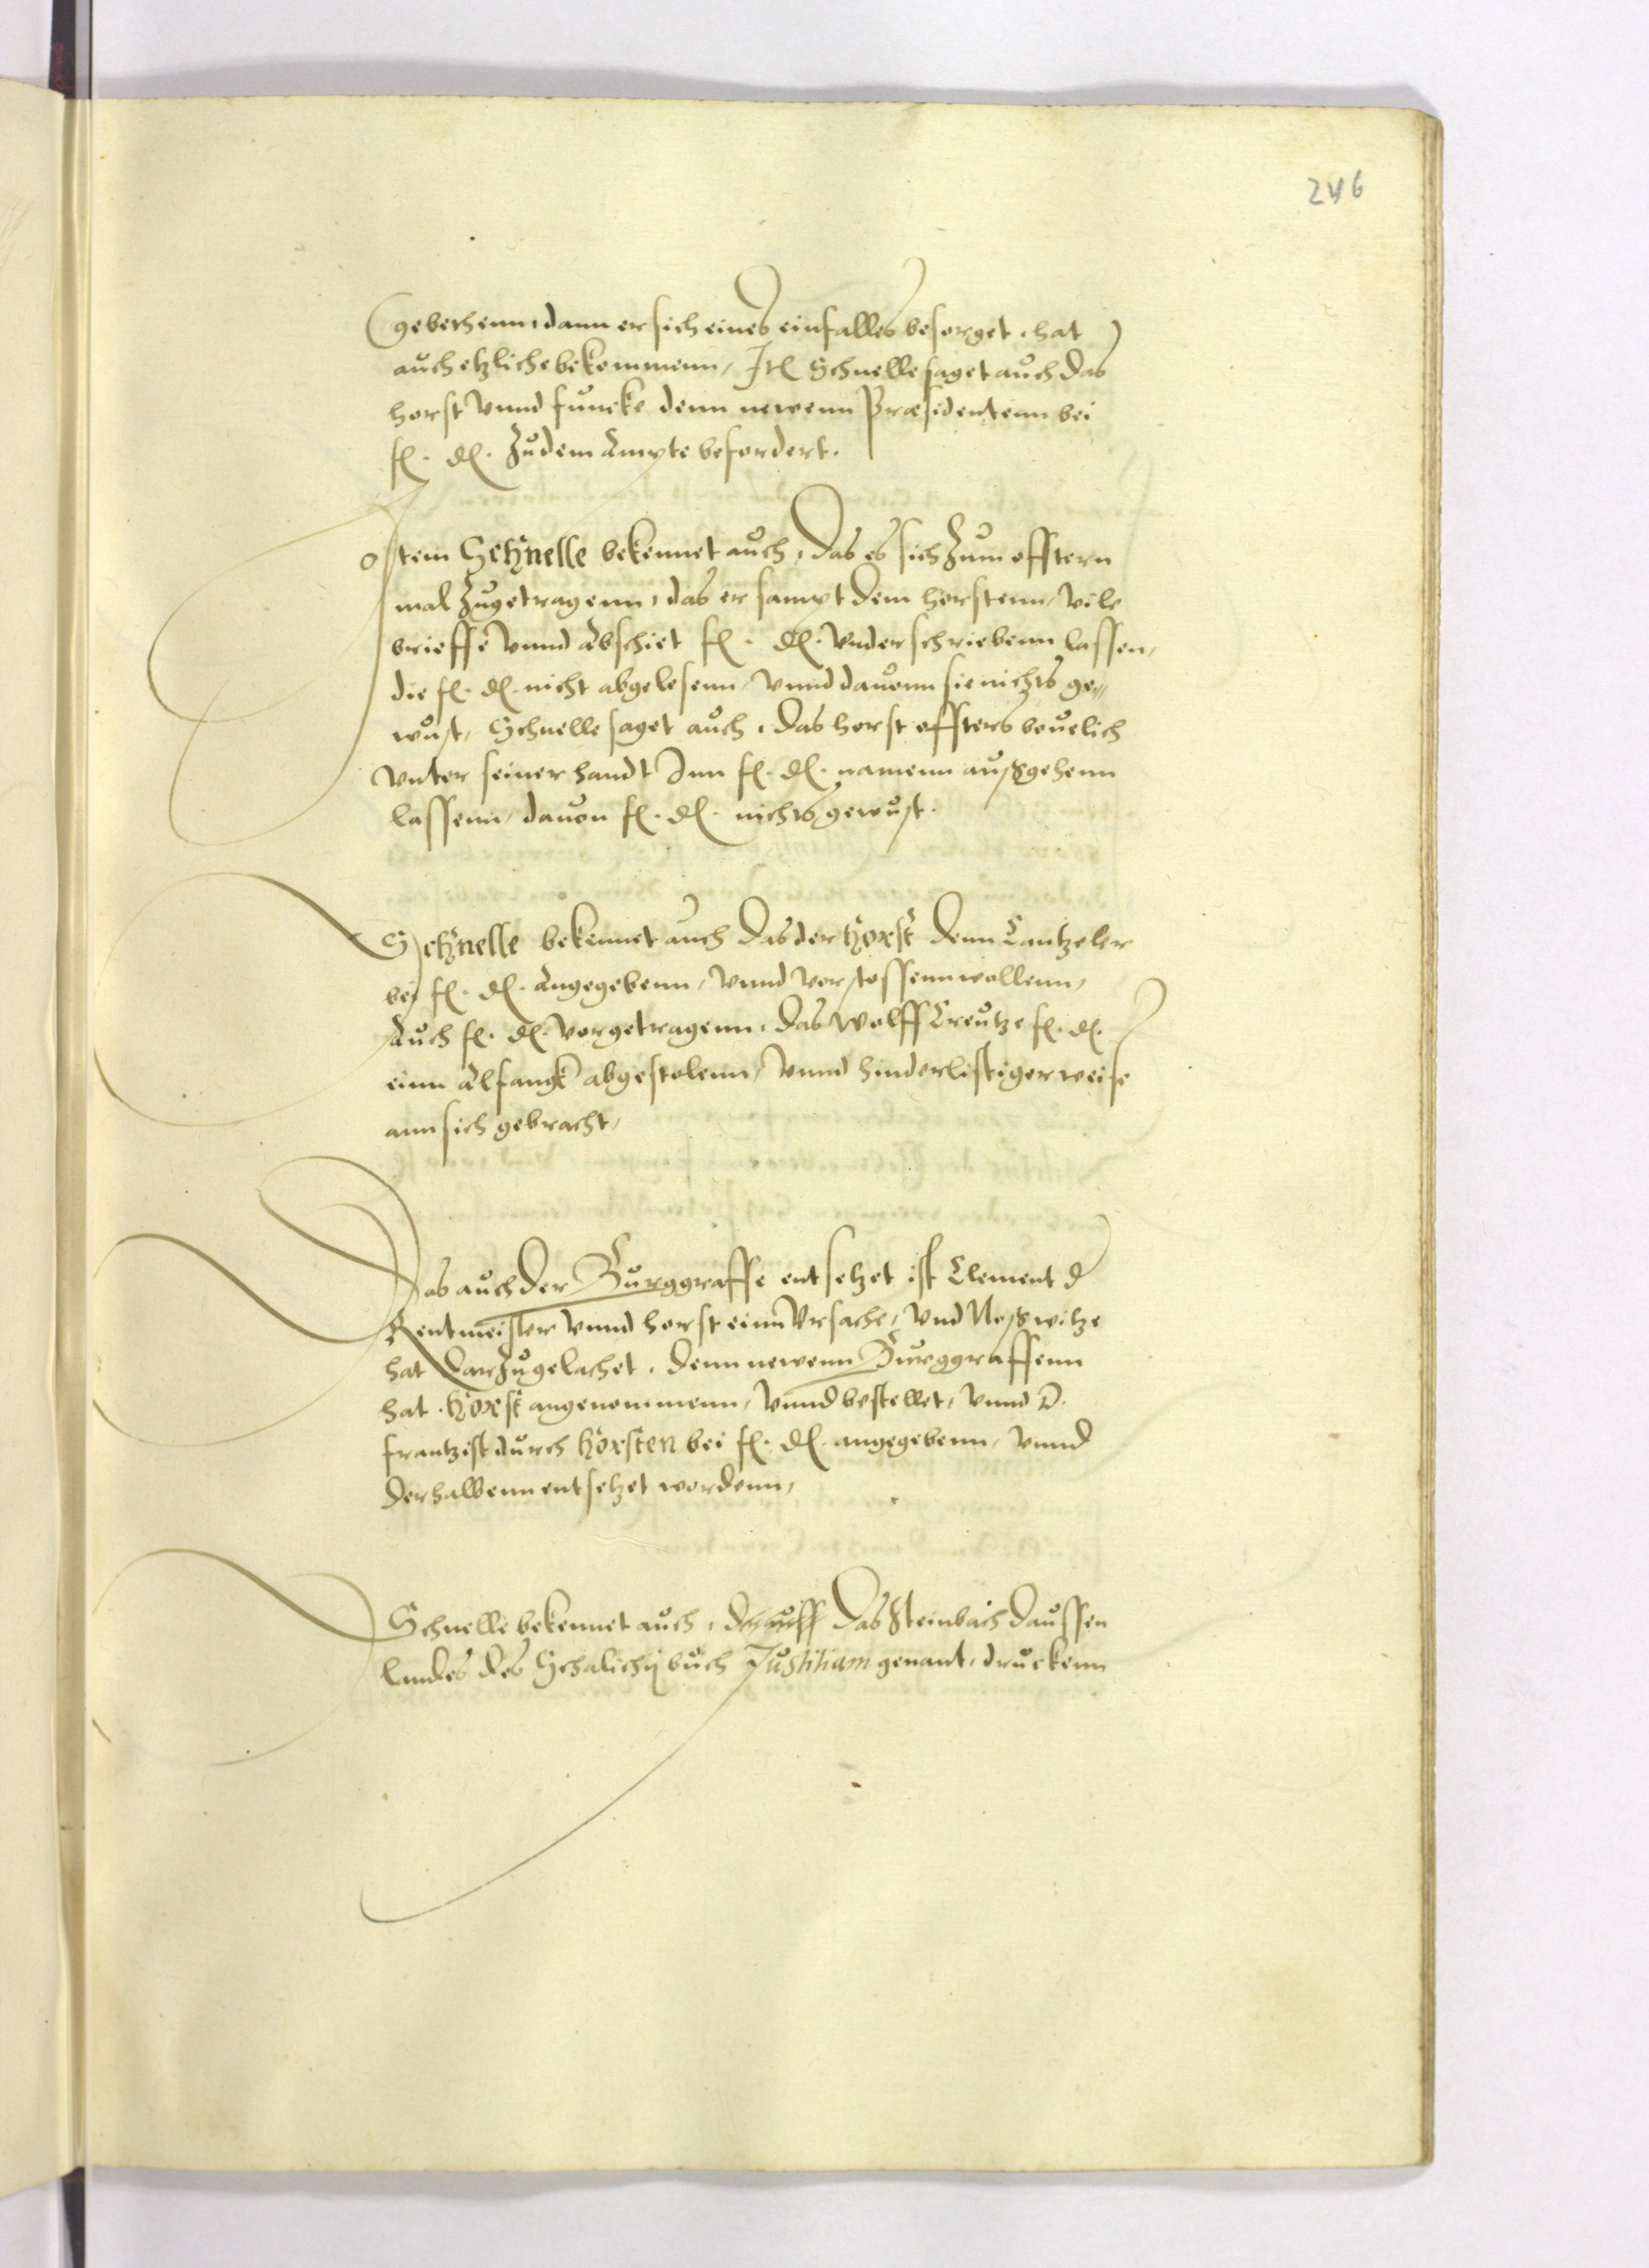 246
gebethenn, dann er sich eines einfalles besorget, hat
auch etzliche bekommenn, Itl Schnelle saget auch das
horst vnnd funcke denn newenn Præsidentenn bei
fl. dl. Zu dem Ampte befordert.
Item Schnelle bekennet auch, das es sich Zum offtern
mal Zugetragenn, das er sampt dem horstenn, vile
brieffe vnnd Abschiet fl. dl. vnderschriebenn lassen,
die fl. dl. nicht abgelesenn, vnnd dauonn sie nichts ge„
wust, Schnelle saget auch, das horst offters beuelich
vnter seiner handt Inn fl. dl. namenn außgehenn
lassenn, dauon fl. dl. nichts gewust.
Schnelle bekennet auch das der horst denn Cantzeler
bej fl. dl. Angegebenn, vnnd verstossenn wollenn,
Auch fl. dl. vorgetragenn, das Wolff Creutze fl. dl.
einn Alfangk abgestolenn, vnnd hinderlistiger weise
ann sich gebracht,
Das auch der Burggraffe entsetzet ist Clement d
Rentmeister vnnd horst einn vrsache, vnd Noßwitze
hat darzu gelachet, denn newenn Burggraffenn
hat horst angenommenn, vnnd bestellet, vnnd D.
frantz ist durch horsten bei fl. dl. angegebenn, vnnd
derhalbenn entsetzet wordenn,
Schnelle bekennet auch, darauff das Steinbach daussen
landes des Schalichij buch Justitiam genant, druckenn